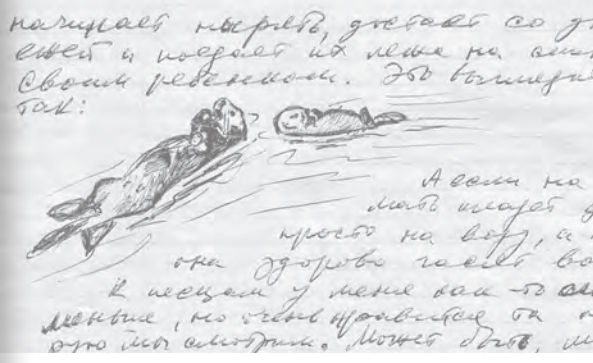 начинает нырять, достает со д
ежей и поедает их лежа на спин
своим ребенком. Это выгляди
так:
А если на
мать кладет д
просто на воду, и
она здорово гасит во
К песцам у меня как-то
меньше, но очень нравится та
рую мы смотрим. Может быть, м